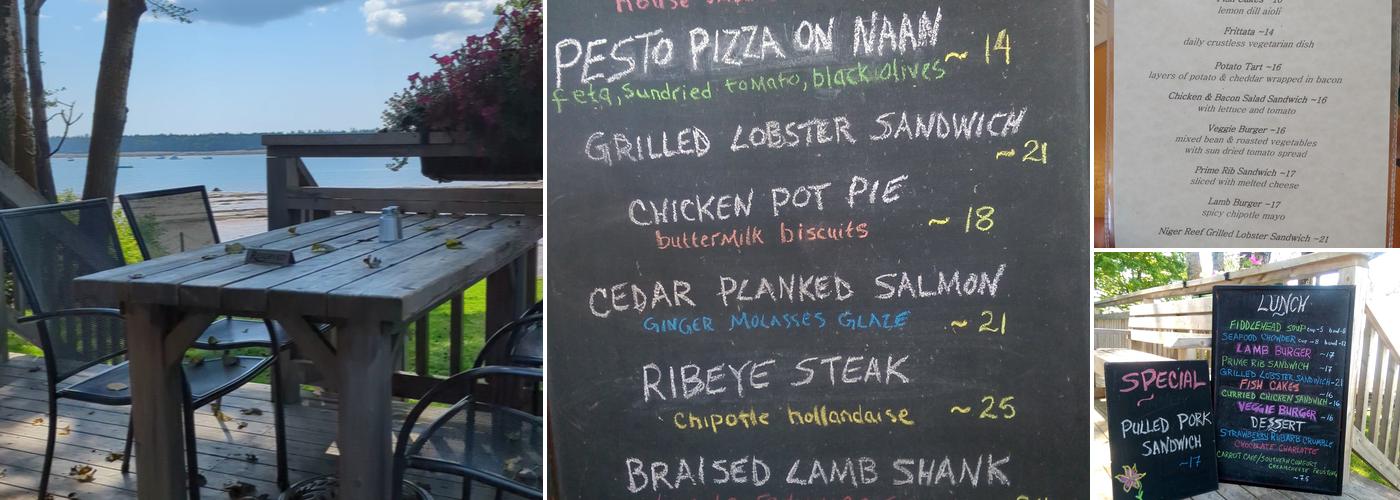 House
PESTO PIZZA ON NAAN ~ 14
feta, sundried tomato, black olives
GRILLED LOBSTER SANDWICH
~21
CHICKEN POT PIE
buttermilk biscuits ~ 18
CEDAR PLANKED SALMON
GINGER MOLASSES GLAZE ~ 21
RIBEYE STEAK
Chipotle hollandaise ~ 25
BRAISED LAMB SHANK
Fish Cakes ~16
lemon dill aioli
Frittata ~14
daily crustless vegetarian dish
Potato Tart ~16
layers of potato & cheddar wrapped in bacon
Chicken & Bacon Salad Sandwich ~16
with lettuce and tomato
Veggie Burger ~16
mixed bean & roasted vegetables
with sun dried tomato spread
Prime Rib Sandwich ~17
sliced with melted cheese
Lamb Burger ~17
spicy chipotle mayo
Niger Reef Grilled Lobster Sandwich ~21
SPECIAL
PULLED PORK
SANDWICH
~17
LUNCH
FIDDLEHEAD SOUP cup-5 bowl-8
SEAFOOD CHOWDER cup-8 bowl-12
LAMB BURGER ~17
PRIME RIB SANDWICH ~17
GRILLED LOBSTER SANDWICH~21
FISH CAKES ~16
CURRIED CHICKEN SANDWICH~16
VEGGIE BURGER ~16
DESSERT
STRAWBERRY RUBARB CRUMBLE
CHOCOLATE CHARLOTTE
CARROT CAKE/SOUTHERN COMFORT
CREAMCHEESE FROSTING
~7.5